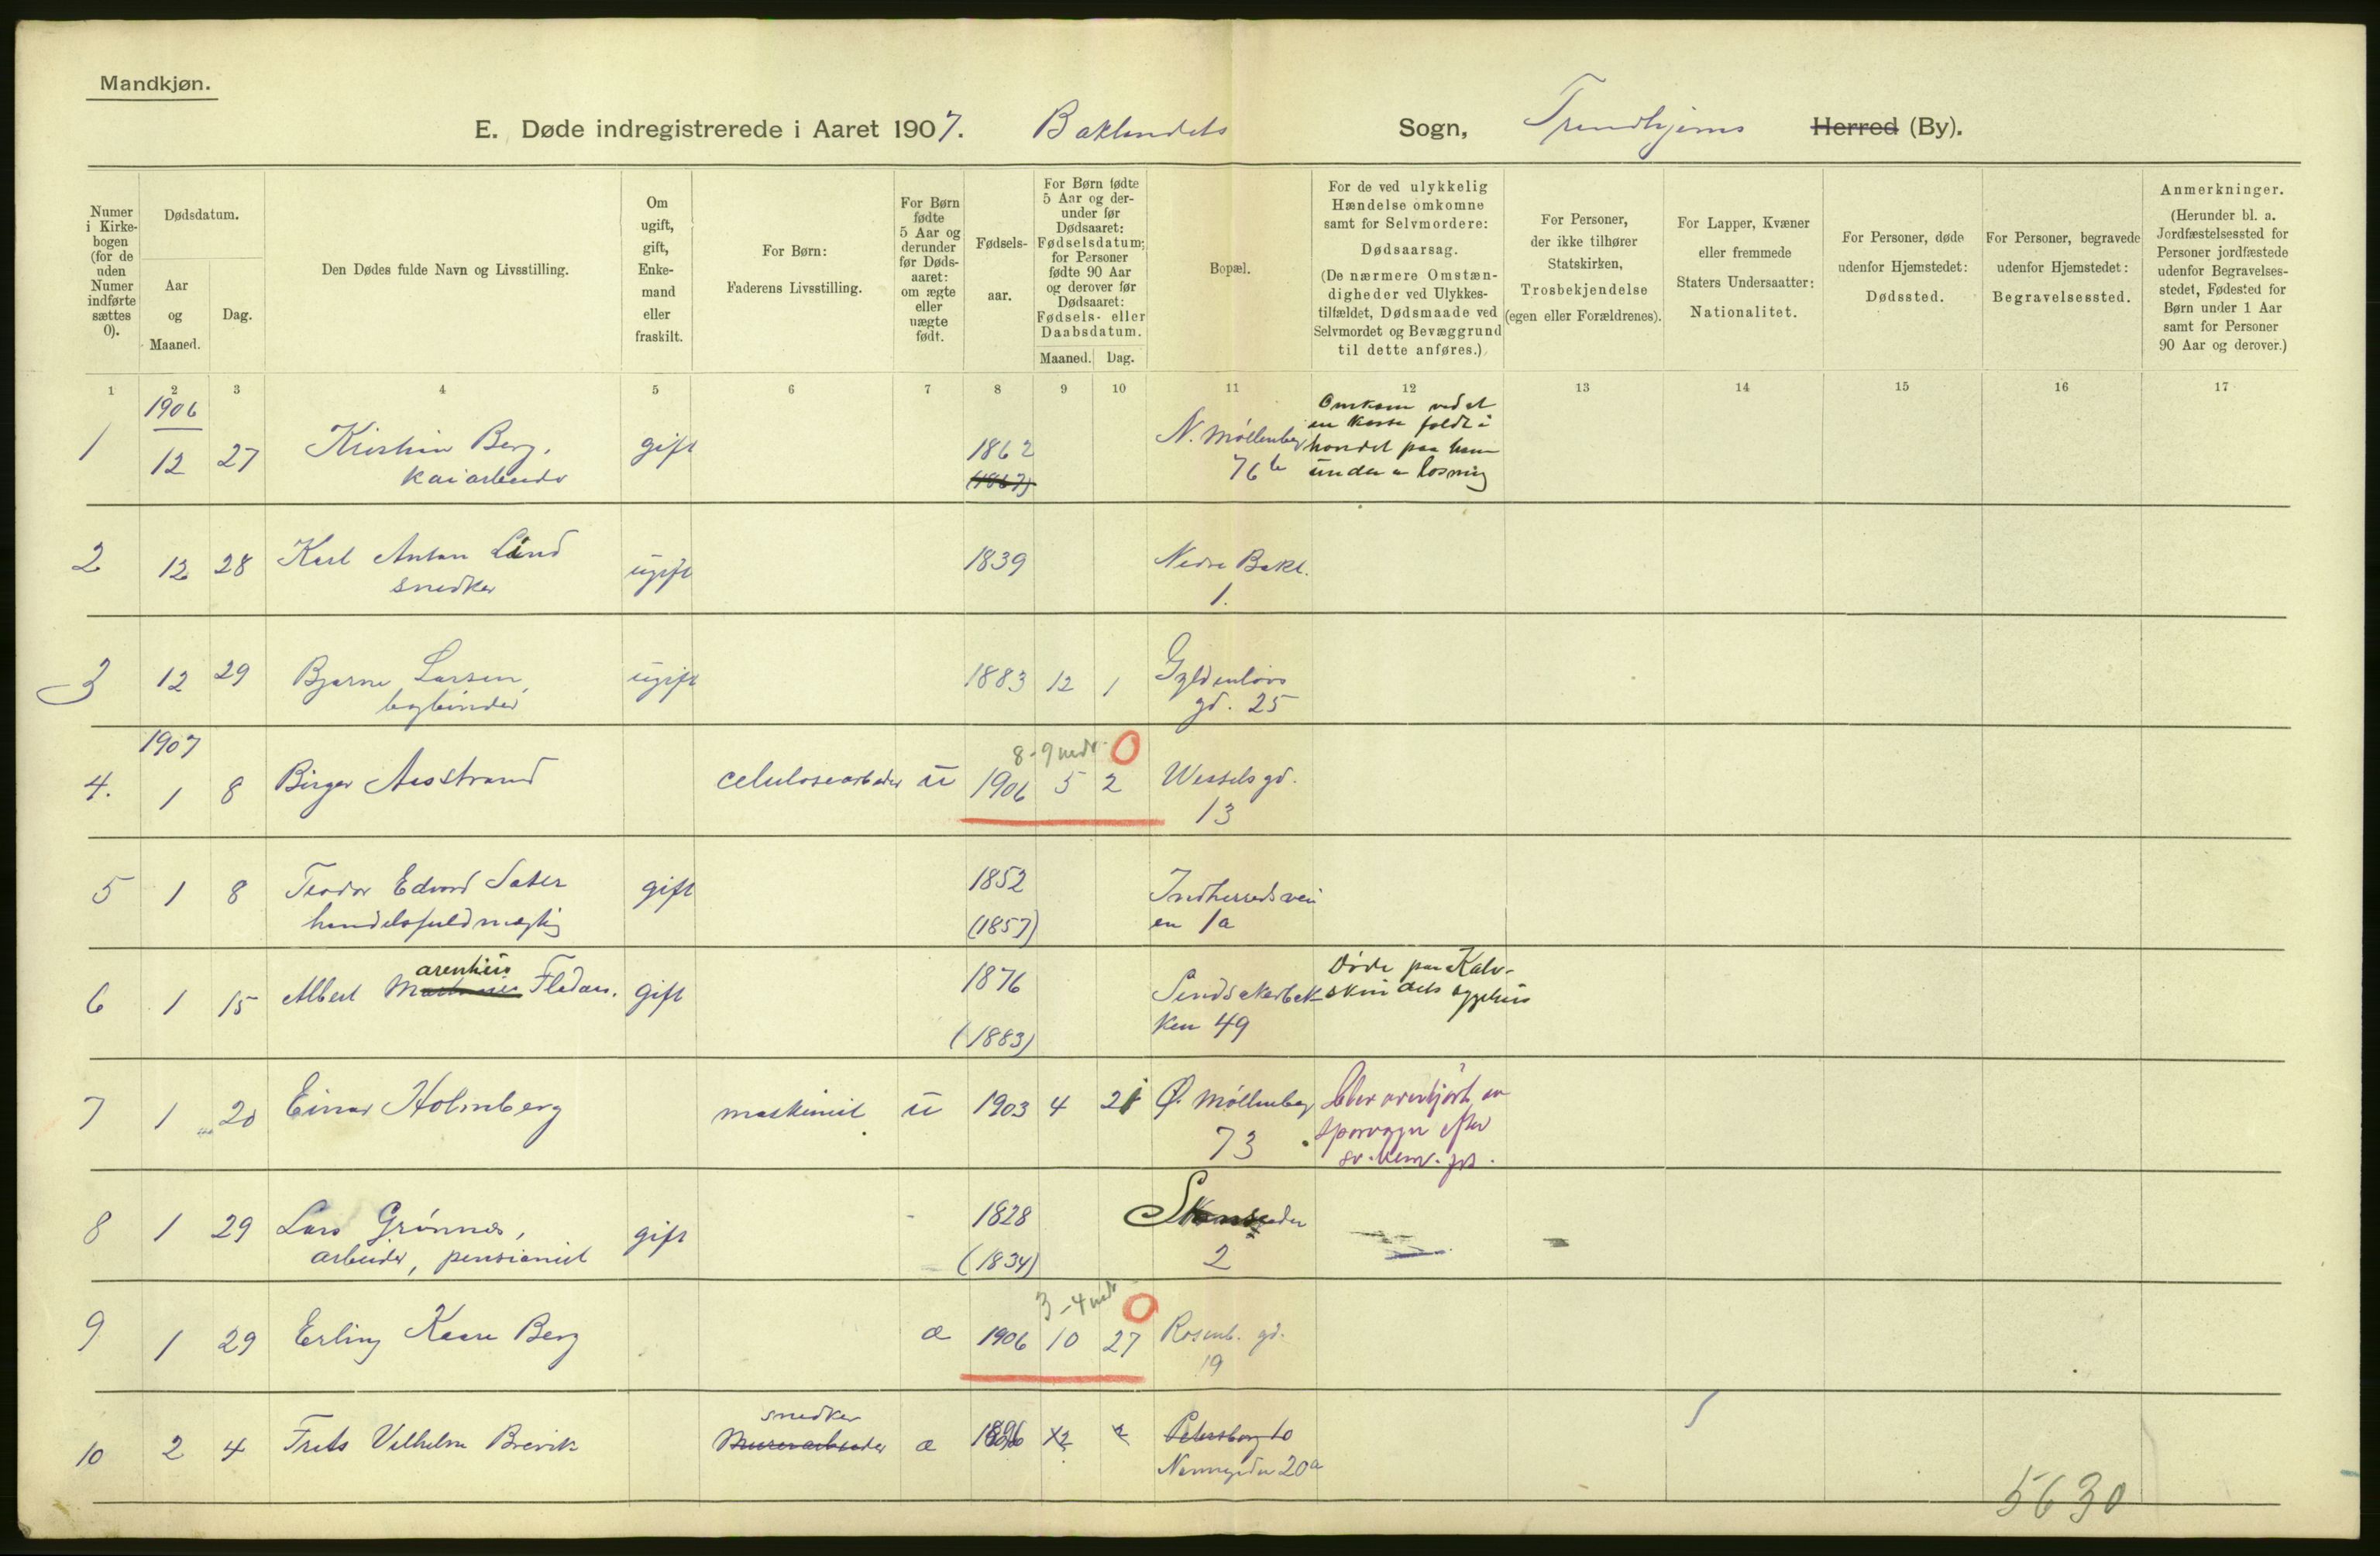 Mandkjøn.
E. Døde indregistrerede i Aaret 1907. Baklandets Sogn, Trondhjems Herred (By).
Numer i Kirkebogen (for de uden Numer indførte sættes 0).
Dødsdatum.
Aar og Maaned.
Dag.
Den Dødes fulde Navn og Livsstilling.
Om ugift, gift, Enkemand eller fraskilt.
For Børn: Faderens Livsstilling.
For Børn fødte 5 Aar og derunder før Dødsaaret: om ægte eller uægte født.
Fødselsaar.
For Børn fødte 5 Aar og derunder før Dødsaaret: Fødselsdatum; for Personer fødte 90 Aar og derover før Dødsaaret: Fødsels- eller Daabsdatum.
Maaned. Dag.
Bopæl.
For de ved ulykkelig Hændelse omkomne samt for Selvmordere: Dødsaarsag. (De nærmere Omstændigheder ved Ulykkestilfældet, Dødsmaade ved Selvmordet og Bevæggrund til dette anføres.)
For Personer, der ikke tilhører Statskirken, Trosbekjendelse (egen eller Forældrenes).
For Lapper, Kvæner eller fremmede Staters Undersaatter: Nationalitet.
For Personer, døde udenfor Hjemstedet: Dødssted.
For Personer, begravede udenfor Hjemstedet: Begravelsessted.
Anmerkninger. (Herunder bl. a. Jordfæstelsessted for Personer jordfæstede udenfor Begravelsesstedet, Fødested for Børn under 1 Aar samt for Personer 90 Aar og derover.)
1 2 3 4 5 6 7 8 9 10 11 12 13 14 15 16 17
1906
1 12 27 Kristian Berg, gift 1862 N. Møllenberg
kaiarbeider (1867) 76 b
Omkom ved at
en kasse faldt i
hovedet paa ham
under losning
2 12 28 Karl Anton Lund ugift 1839 Nedre Bakl.
snedker 1.
3 12 29 Bjarne Larsen, ugift 1883 12 1 Gyldenløvs
bogbinder gd. 25
1907
8-9 mdr. 0
4. 1 8 Birger Aasstrand celulosearbeider u 1906 5 2 Wesselsgd.
13
5 1 8 Teodor Edvard Sater gift 1852 Indherredsvei
handelsfuldmægtig (1857) en 1a
arentius
6 1 15 Albert Martinius gift 1876
(1883) ken 49
Døde paa Kalv-
skindets sygehus
7 1 20 Einar Holmberg maskinist u 1903 4 21 Ø. Møllenberg
73
Blev overkjørt av
sporvogn efter
8 1 29 Lars Grønnes, gift 1828
arbeider, pensionist (1834) 2
3-4 mdr 0
9 1 29 Erling Kaare Berg æ 1906 10 27 Rosenb. gd.
19
snedker
10 2 4 Frits Vilhelm Brevik Murerarbeider æ Petersborg 10
20a
5630